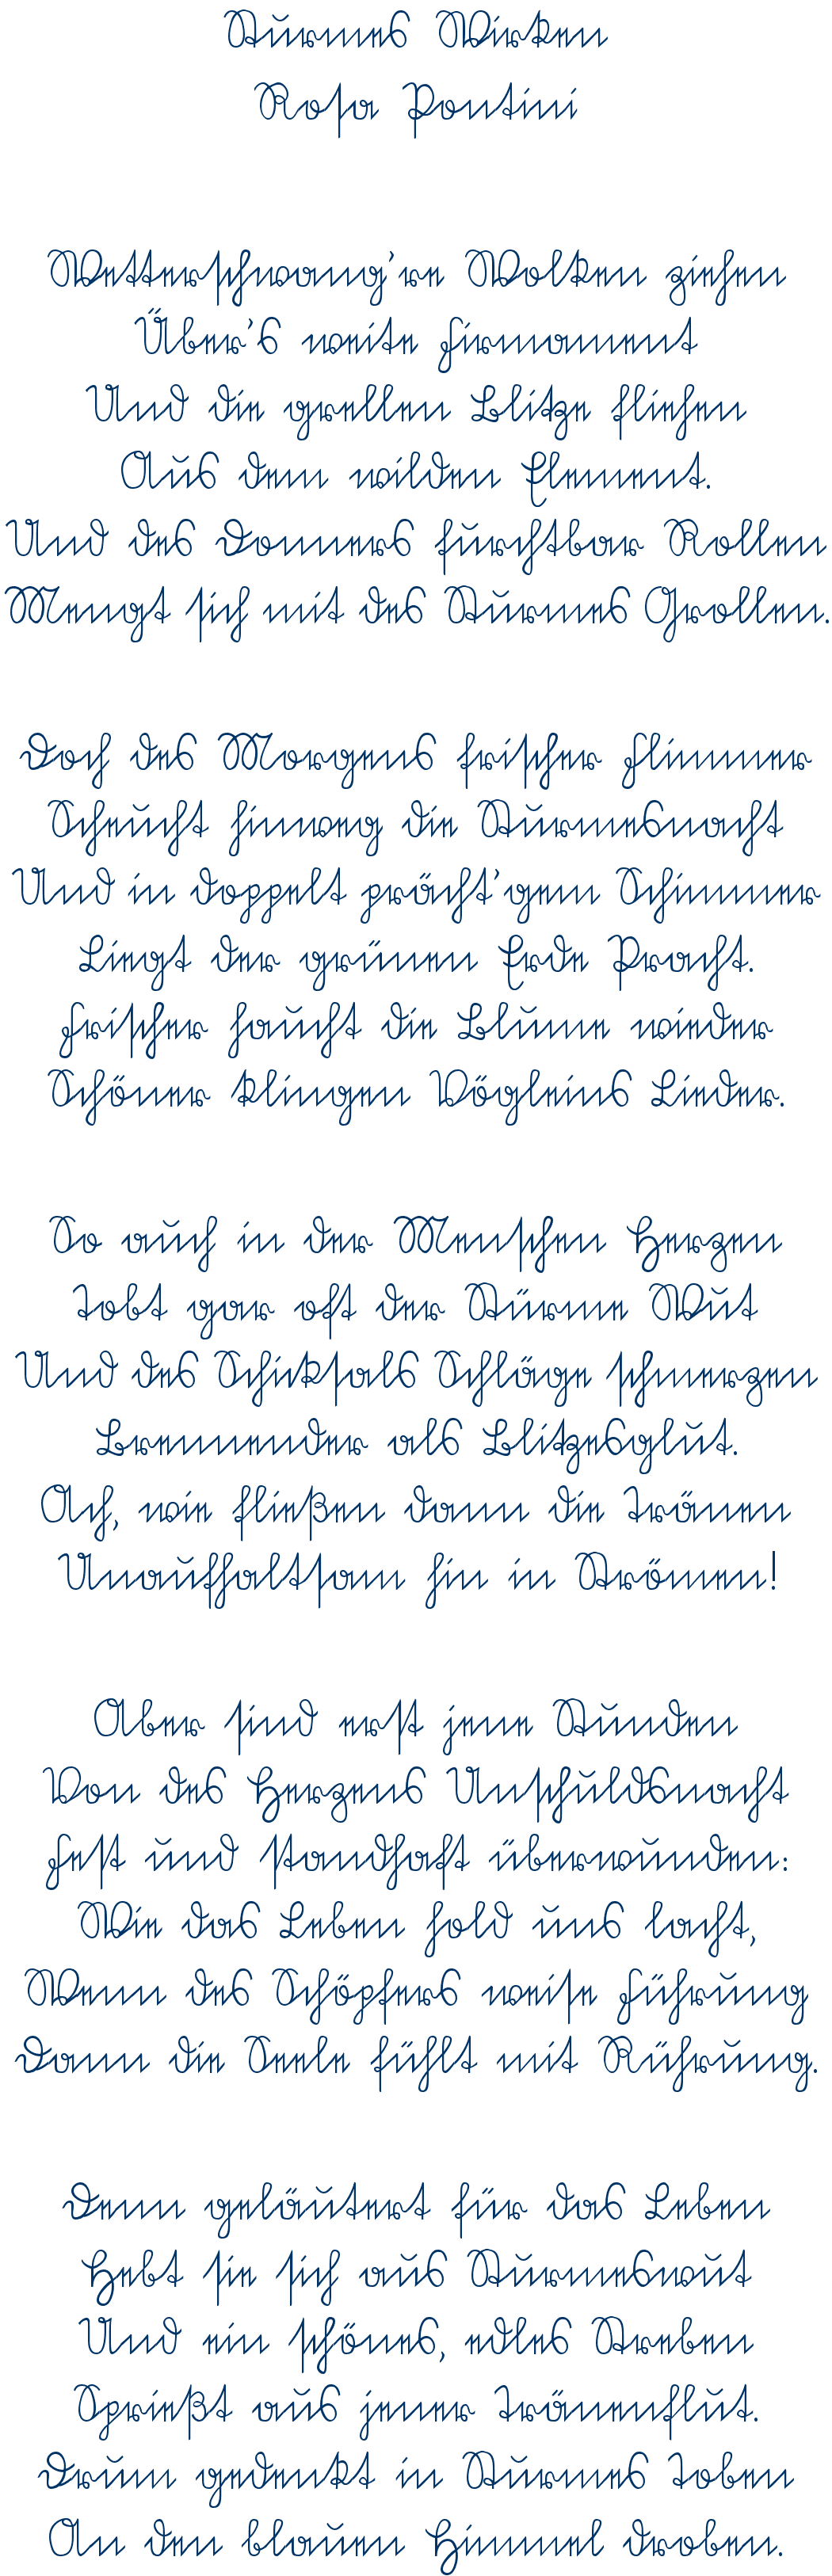 Sturmes Wirken
Rosa Pontini
Wetterschwang're Wolken ziehen
Über's weite Firmament
Und die grellen Blitze fliehen
Aus dem wilden Element.
Und des Donners furchtbar Rollen
Mengt sich mit des Sturmes Grollen.
Doch des Morgens frischer Flimmer
Scheucht hinweg die Sturmesnacht
Und in doppelt prächt'gem Schimmer
Liegt der grünen Erde Pracht.
Frischer haucht die Blume wieder
Schöner klingen Vögleins Lieder.
So auch in der Menschen Herzen
Tobt gar oft der Stürme Wut
Und des Schicksals Schläge schmerzen
Brennender als Blitzesglut.
Ach, wie fließen dann die Tränen
Unaufhaltsam hin in Strömen!
Aber sind erst jene Stunden
Von des Herzens Unschuldsnacht
Fest und standhaft überwunden:
Wie das Leben hold uns lacht,
Wenn des Schöpfers weise Führung
Dann die Seele fühlt mit Rührung.
Denn geläutert für das Leben
Hebt sie sich aus Sturmeswut
Und ein schönes, edles Streben
Sprießt aus jener Tränenflut.
Drum gedenkt in Sturmes Toben
An den blauen Himmel droben.